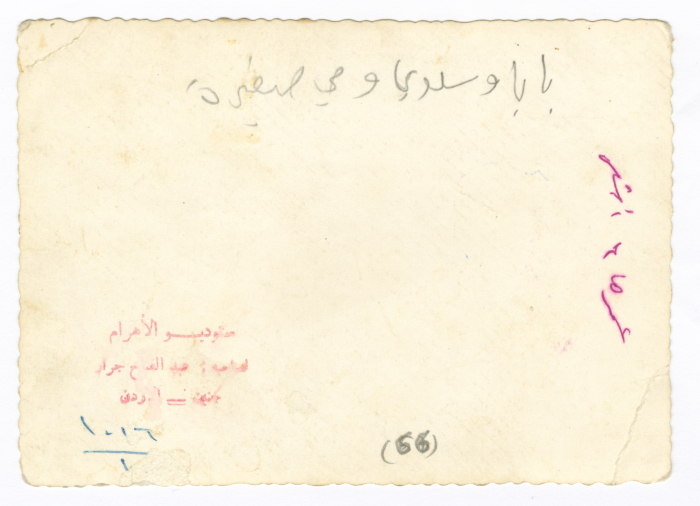 بابا وسلوى وهي صغيرة
ستوديو الأهرام
لصاحبه : عبد الفتاح جرار
جنين = الاردن
١٠١٦
١
(66)